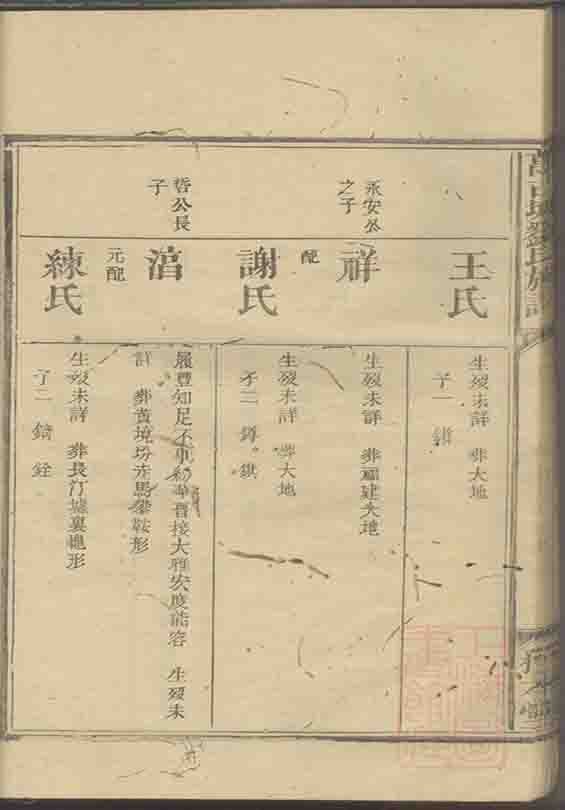 王氏
生歿未詳 葬大地
子一
永安公
之子
祥
生歿未詳 葬福建大地
配
謝氏
生歿未詳 葬大地
子二 鐏 鉷
哲公長
子
湻
履豐知足不事紛華晋接大雅安度能容 生歿未
詳 葬黄境坋走馬攀鞍形
元配
練氏
生歿未詳 葬長汀墟裏虵形
子二 錡 銓